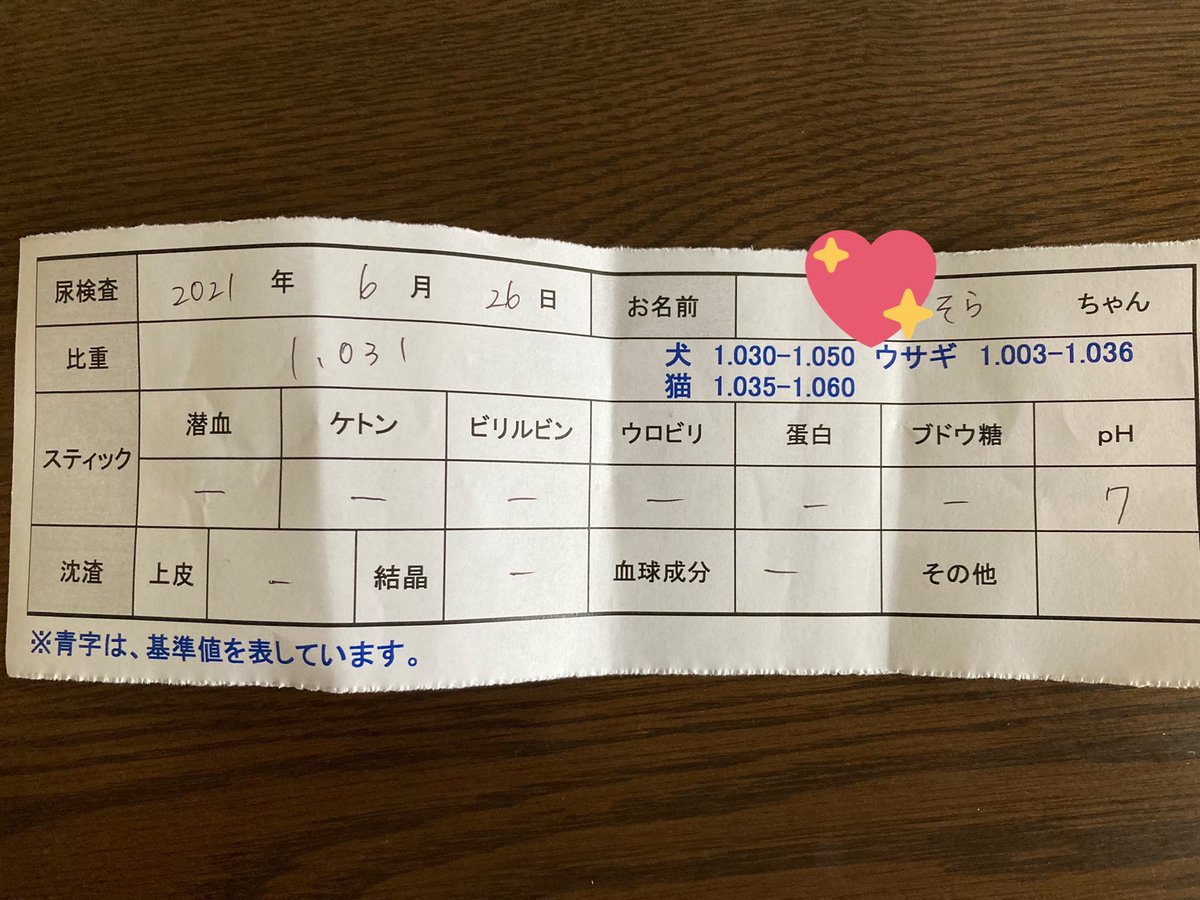 尿検査 2021 年 6 月 26 日 お名前 そら ちゃん
比重 1.031 犬 1.030-1.050 ウサギ 1.003-1.036
猫 1.035-1.060
スティック 潜血 ケトン ビリルビン ウロビリ 蛋白 ブドウ糖 pH
- - - - - - 7
沈渣 上皮 - 結晶 - 血球成分 - その他
※青字は、基準値を表しています。